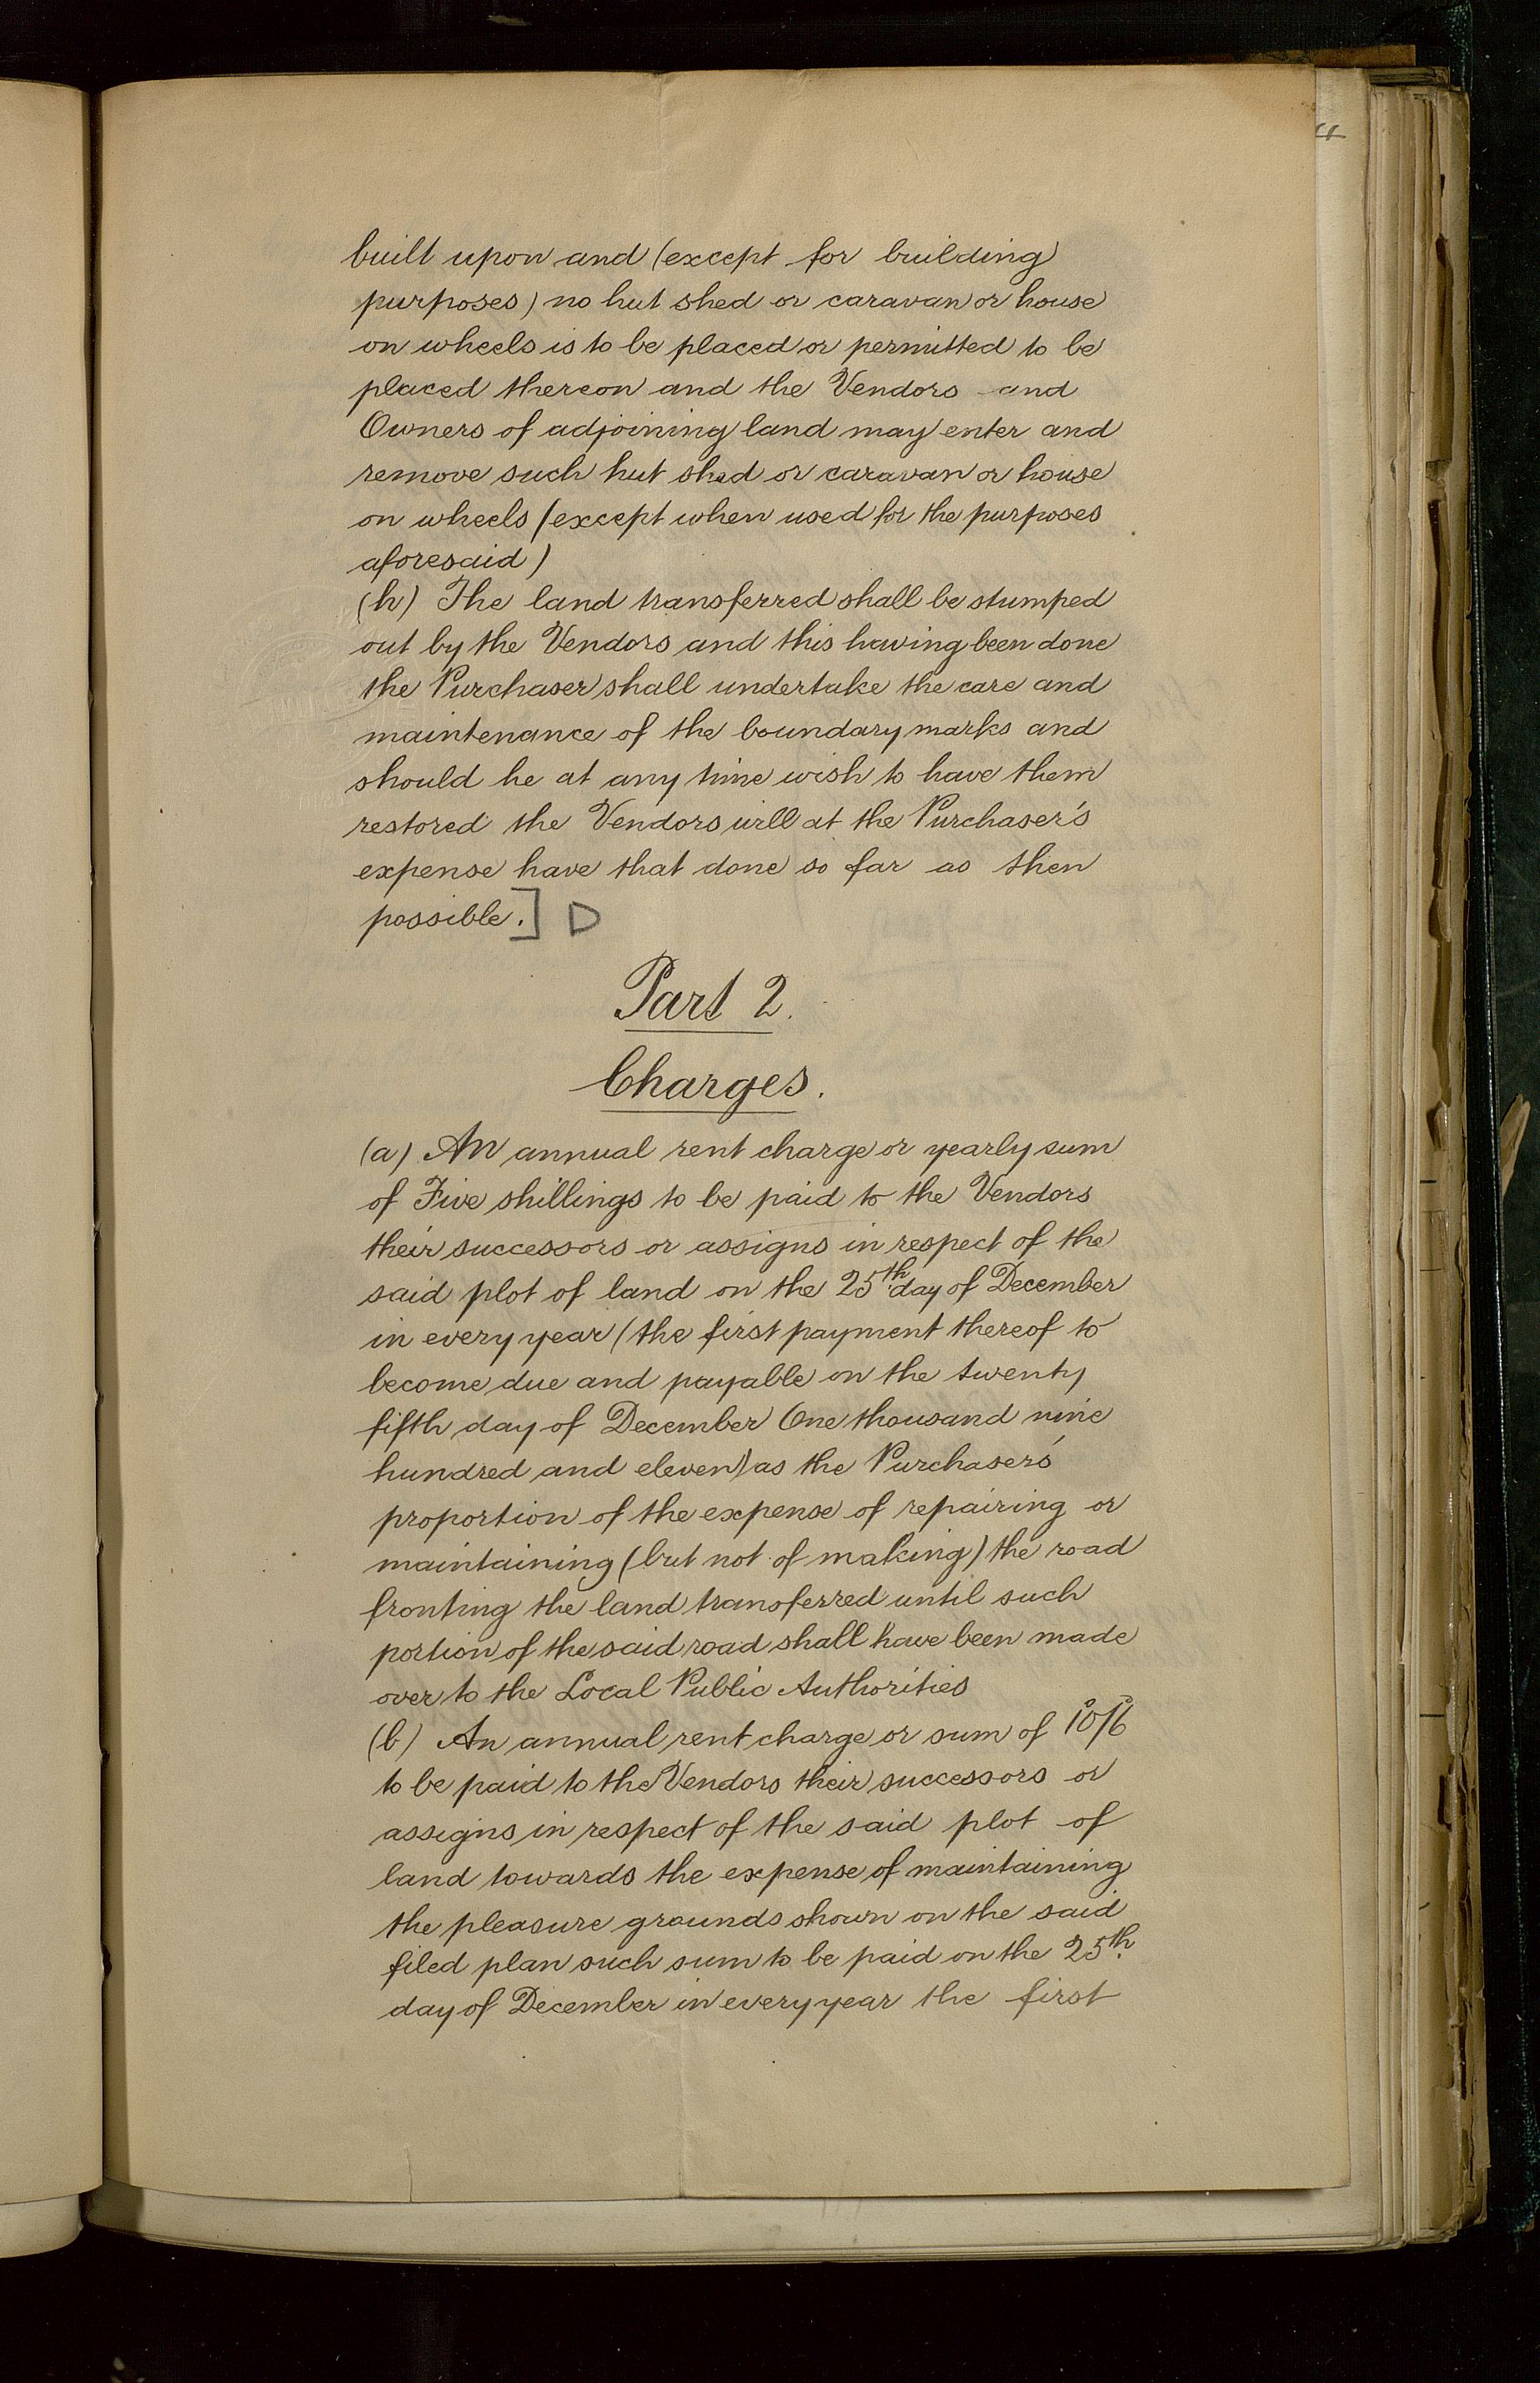 built upon and (except for building
purposes) no hut shed or caravan or house
on wheels is to be placed or permitted to be
placed thereon and the Vendors and
Owners of adjoining land may enter and
remove such hut shed or caravan or house
on wheels (except when used for the purposes
aforesaid)
(h) The land transferred shall be stumped
out by the Vendors and this having been done
the Purchaser shall undertake the care and
maintenance of the boundary marks and
should he at any time wish to have them
restored the Vendors will at the Purchaser's
expense have that done so far as then
possible.] D
Part 2.
Charges.
(a) An annual rent charge or yearly sum
of Five shillings to be paid to the Vendors
their successors or assigns in respect of the
said plot of land on the 25th day of December
in every year (the first payment thereof to
become due and payable on the twenty
fifth day of December One thousand nine
hundred and eleven) as the Purchaser's
proportion of the expense of repairing or
maintaining (but not of making) the road
fronting the land transferred until such
portion of the said road shall have been made
over to the Local Public Authorities
(b) An annual rent charge or sum of 10/6
to be paid to the Vendors their successors or
assigns in respect of the said plot of
land towards the expense of maintaining
the pleasure grounds shown on the said
filed plan such sum to be paid on the 25th
day of December in every year the first